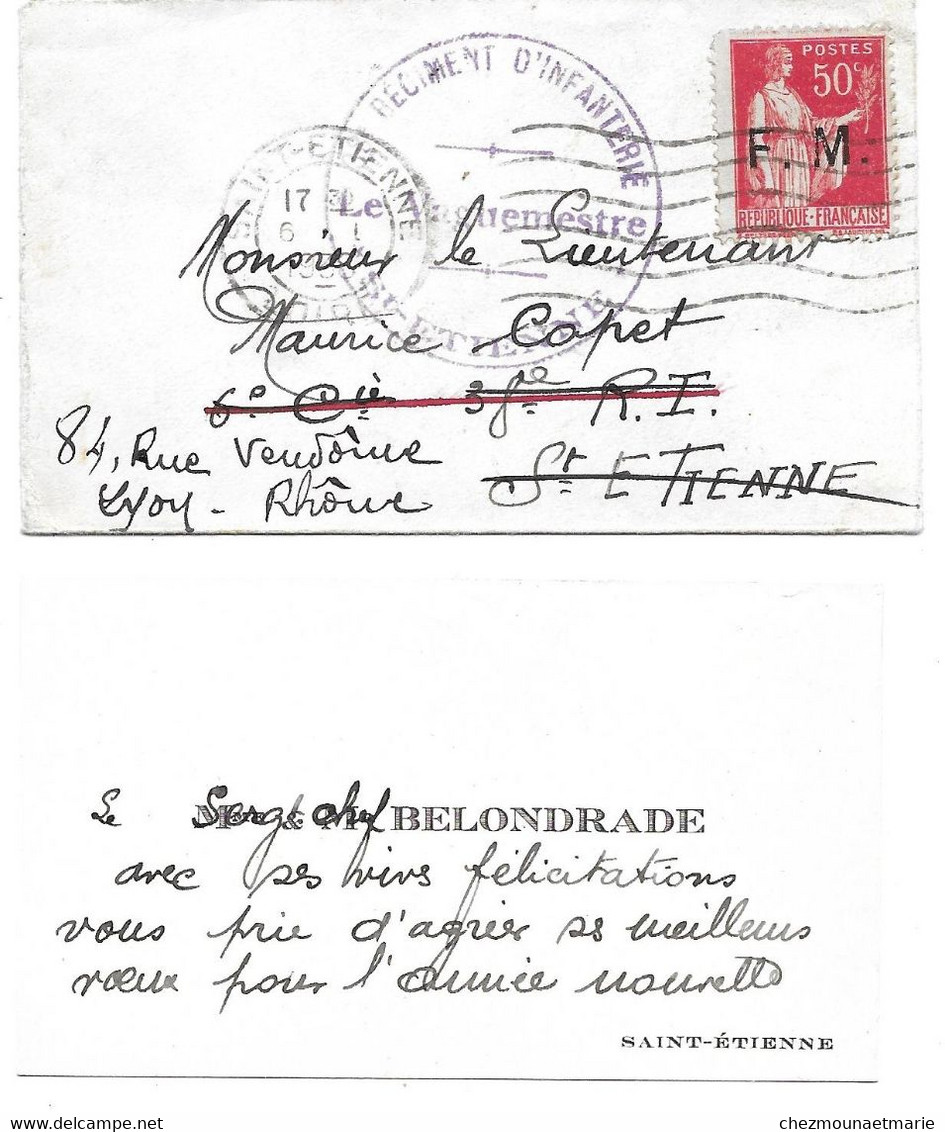 RÉGIMENT D'INFANTERIE
Le Vaguemestre
ST-ETIENNE
SAINT-ETIENNE
17
6
POSTES
50c
F. M.
REPUBLIQUE-FRANÇAISE
Monsieur le Lieutenant
Maurice Capet
6e Cie 38e R.I.
St ETIENNE
84, Rue Vendôme
Lyon - Rhône
Le Sergt chef BELONDRADE
avec ses vives félicitations
vous prie d'agréer ses meilleurs
vœux pour l'année nouvelle
SAINT-ÉTIENNE
chezmounaetmarie.delcampe.net